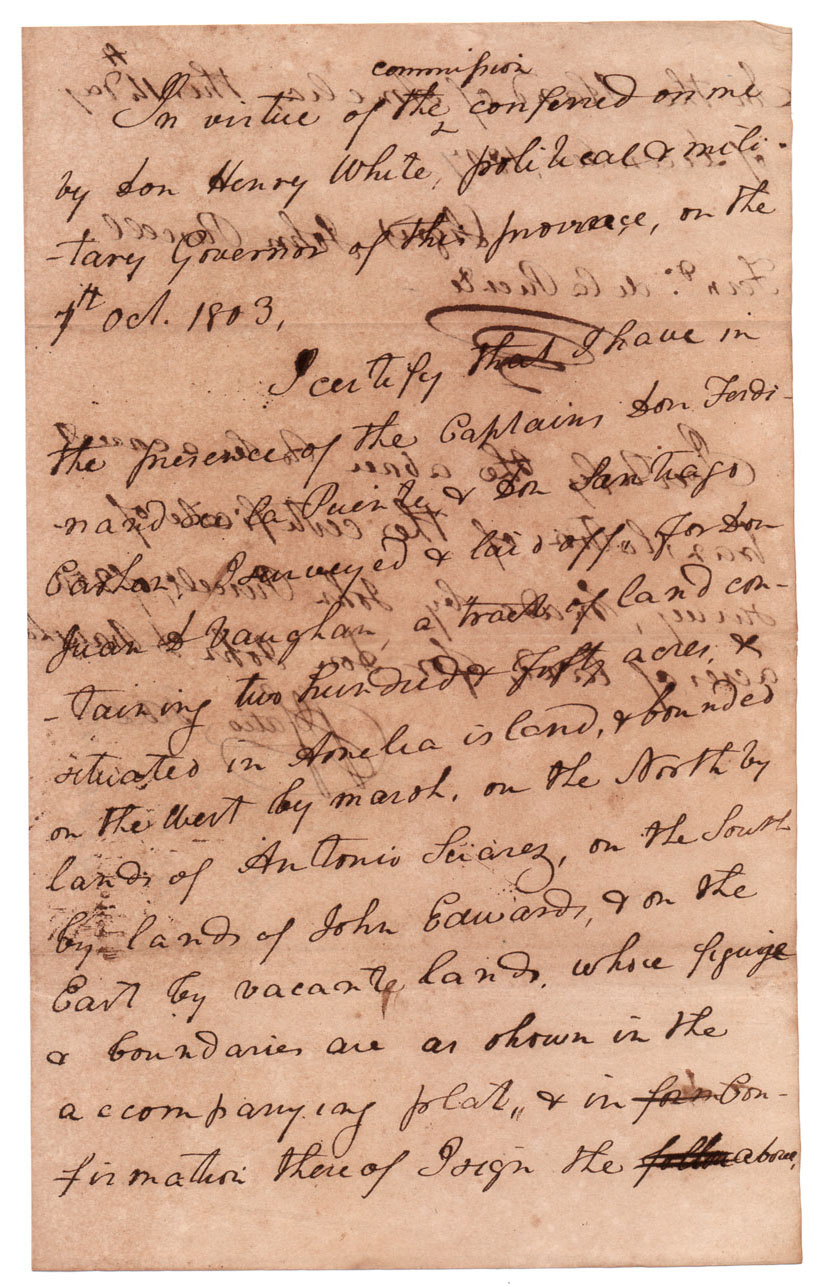 commission
In virtue of the conferred on me
by Don Henry White, political & mili-
-tary Governor of this province, on the
7th Oct. 1803,
I certify that I have in
the presence of the Captains Don Ferdi-
-nand de la Puente & Don Santiago
surveyed & laid off, for Don
Juan D Vaughan, a tract of land con-
-taining two hundred & fifty acres, &
situated in Amelia island, & bounded
on the West by marsh, on the North by
lands of Antonio Suarez, on the South
by lands of John Edwards, & on the
East by vacante lands, whose figure
& boundaries are as shown in the
accompanying plat,, & in form Con-
-firmation thereof I sign the above,